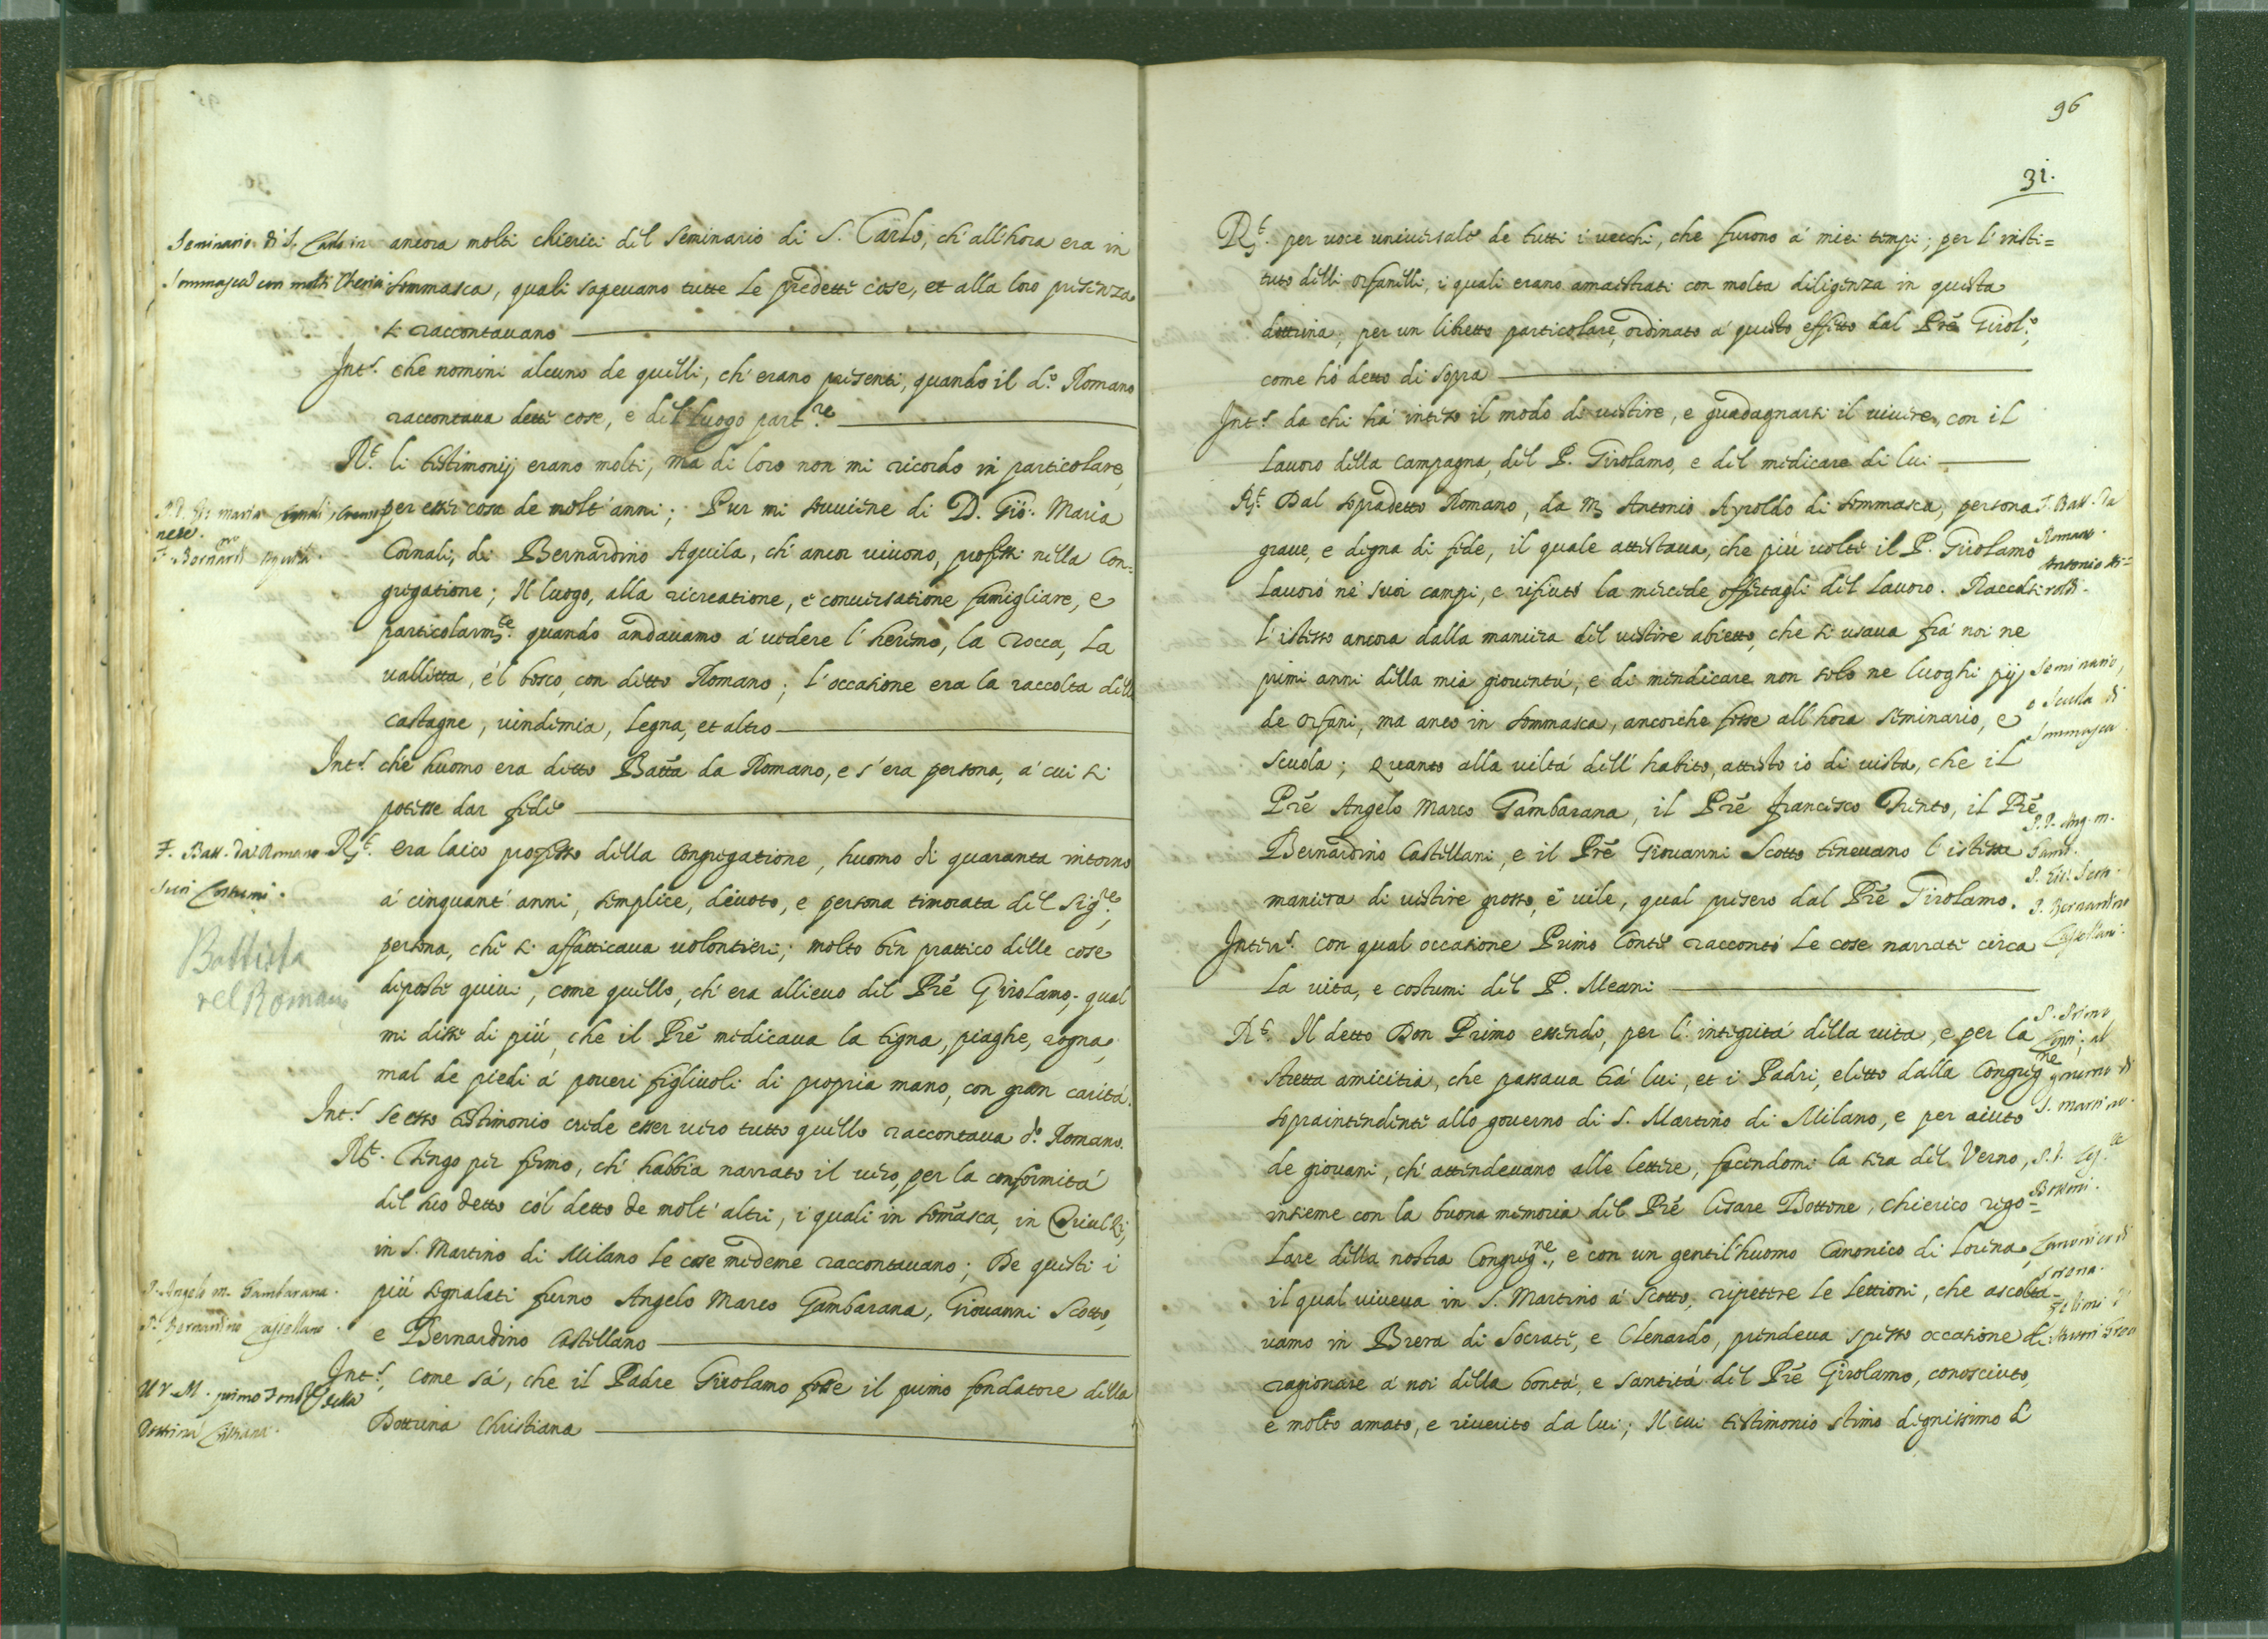 ancora molti chierici del Seminario di S. Carlo, ch'all'hora era in
Sommasca, quali sapevano tutte le predette cose, et alla loro presenza
si raccontavano
Int.s che nomini alcuno de quelli, ch'erano presenti, quando il d.o Romano
raccontava dette cose, e del luogo part.re
R.t li testimonij erano molti, ma di loro non mi ricordo in particolare,
per esser cosa de molt'anni; Pur mi souuiene di D. Gio. Maria
Cornali, di Bernardino Aquila, ch'ancor uiuono, professi nella Con=
gregatione; Il luogo, alla ricreatione, e conuersatione famigliare, e
particolarm.te quando andauamo á uedere l'heremo, la rocca, la
ualletta, e'l bosco, con detto Romano; l'occasione era la raccolta delle
castagne, uindemia, legna, et altro
Int.s che huomo era detto Batta da Romano, e s'era persona, a' cui si
potesse dar fede
R.t era laico professo della Congregatione, huomo di quaranta intorno
á cinquant'anni, semplice, deuoto, e persona timorata del Sig.re,
persona, che si affatticaua uolontieri; molto ben prattico delle cose
deposte quiui, come quello, ch'era allieuo del Pre Girolamo, qual
mi disse di piú, che il Pre medicaua la tigna, piaghe, rogna,
mal de piedi á poueri figliuoli di propria mano, con gran caritá.
Int.s se esso testimonio crede esser uero tutto quello raccontaua d.o Romano.
R.t Tengo per fermo, ch'habbia narrato il uero, per la conformitá
del suo detto co'l detto de molt'altri, i quali in Somasca, in Triulzi,
in S. Martino di Milano le cose medeme raccontauano; De questi i
piú segnalati furno Angelo Marco Gambarana, Giouanni Scotto,
e Bernardino Castellano
Int.s come sá, che il Padre Girolamo fosse il primo fondatore della
Dottrina Christiana
Seminario di S. Carlo in
Sommasca con molti Cherici
P. D. Gio maria Cornali, Cremo
nese.
F. Bernard.no Aquila.
F. Batt. da Romano
suoi Costumi.
Battista
del Romano
P. Angelo m. Gambarana.
P. Bernardino Castellano.
U. V. M. primo Fond.re della
Dottrina Christiana.
96
31.
R.t per uoce uniuersale de tutti i uecchi, che furono á miei tempi; per l'insti=
tuto delli orfanelli, i quali erano amaestrati con molta diligenza in questa
dottrina, per un libretto particolare, ordinato á questo effetto dal Pre Girol.o,
come hó detto di sopra
Int.s da chi há inteso il modo di uestire, e guadagnarsi il uiuere, con il
lauoro della campagna, del P. Girolamo, e del medicare di lui
R.t Dal sopradetto Romano, da M. Antonio Ayroldo di Sommasca, persona
graue, e degna di fede, il quale attestaua, che piú uolte il P. Girolamo
lauoró ne' suoi campi, e rifiutó la mercede offertagli del lauoro. Raccolsi
l'istesso ancora dalla maniera del uestire abietto, che si usaua frá noi ne
primi anni della mia giouentú, e di mendicare non solo ne luoghi pij
de orfani, ma anco in Sommasca, ancorche fosse all'hora seminario, e
scuola; Quanto alla uiltá dell'habito, attesto io di uista, che il
Pre Angelo Marco Gambarana, il Pre Francesco Trento, il Pre
Bernardino Castellani, e il Pre Giouanni Scotto teneuano l'istessa
maniera di uestire grosso, e uile, qual presero dal Pre Girolamo.
Inter.s con qual occasione Primo Conte raccontó le cose narrate circa
la uita, e costumi del P. Meani
R.t Il detto Don Primo essendo, per l'integritá della uita, e per la
stretta amicitia, che passaua trá lui, et i Padri, eletto dalla Congreg.ne
sopraintendente allo gouerno di S. Martino di Milano, e per aiuto
de giouani, ch'attendeuano alle lettere, facendomi la sera del Verno,
insieme con la buona memoria del Pre Cesare Bottone, chierico rego=
lare della nostra Congreg.ne, e con un gentil'huomo Canonico di Lorena,
il qual uiueua in S. Martino á Scotto, ripettere le lettioni, che ascolta=
uamo in Brera di Socrate, e Clenardo, prendeua spesso occasione di
ragionare á noi della bontá, e santitá del Pre Girolamo, conosciuto,
e molto amato, e riuerito da lui; Il cui testimonio stimo dignissimo di
F. Batt. da
Romano.
Antonio Ai=
roldi.
Seminario,
o Scuola di
Sommasca.
P. P. Ang. m.
Gamb.
P. Gio. Scoto.
P. Bernardino
Castellani.
P. Primo
Conti; al
governo di
S. martino.
Bottoni.
Canonico di